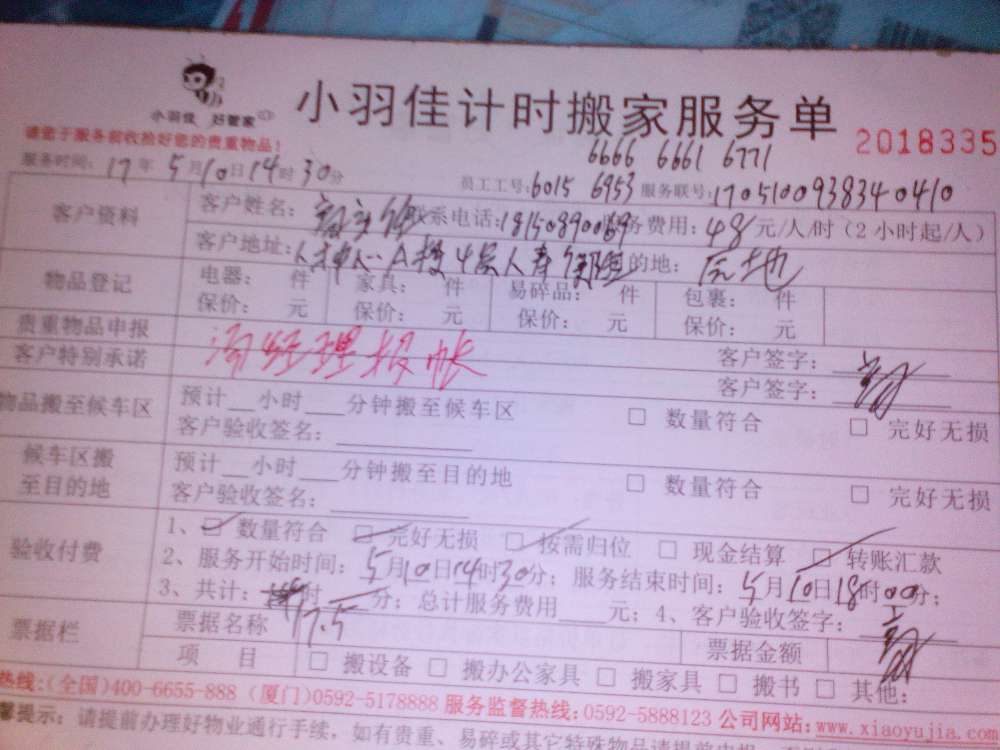 小羽佳 好管家
小羽佳计时搬家服务单
2018335
请您于服务前收拾好您的贵重物品!
6666 6661 6771
服务时间: 17年5月10日14时30分
员工工号:6015 6953 服务联号:170510093834 0410
客户资料
客户姓名: 联系电话:18150890069 服务费用:48元/人/时(2小时起/人)
客户地址: 目的地: 原地
物品登记
电器: 件 家具: 件 易碎品: 件 包裹: 件
保价: 元 保价: 元 保价: 元 保价: 元
贵重物品申报 客户签字:
客户特别承诺 经理报帐 客户签字:
物品搬至候车区
预计__小时___分钟搬至候车区 □ 数量符合 □ 完好无损
客户验收签名:
候车区搬
至目的地
预计__小时___分钟搬至目的地 □ 数量符合 □ 完好无损
客户验收签名:
验收付费
1、□ 数量符合 □ 完好无损 □ 按需归位 □ 现金结算 □ 转账汇款
2、服务开始时间:5月10日14时30分; 服务结束时间:5月10日18时00分;
3、共计: 时 17.5 分; 总计服务费用____元; 4、客户验收签字:
票据栏
票据名称 票据金额
项 目 □ 搬设备 □ 搬办公家具 □ 搬家具 □ 搬书 □ 其他:
热线:(全国)400-6655-888 (厦门)0592-5178888 服务监督热线:0592-5888123 公司网站:www.xiaoyujia.com
馨提示: 请提前办理好物业通行手续, 如有贵重、易碎或其它特殊物品请提前申报